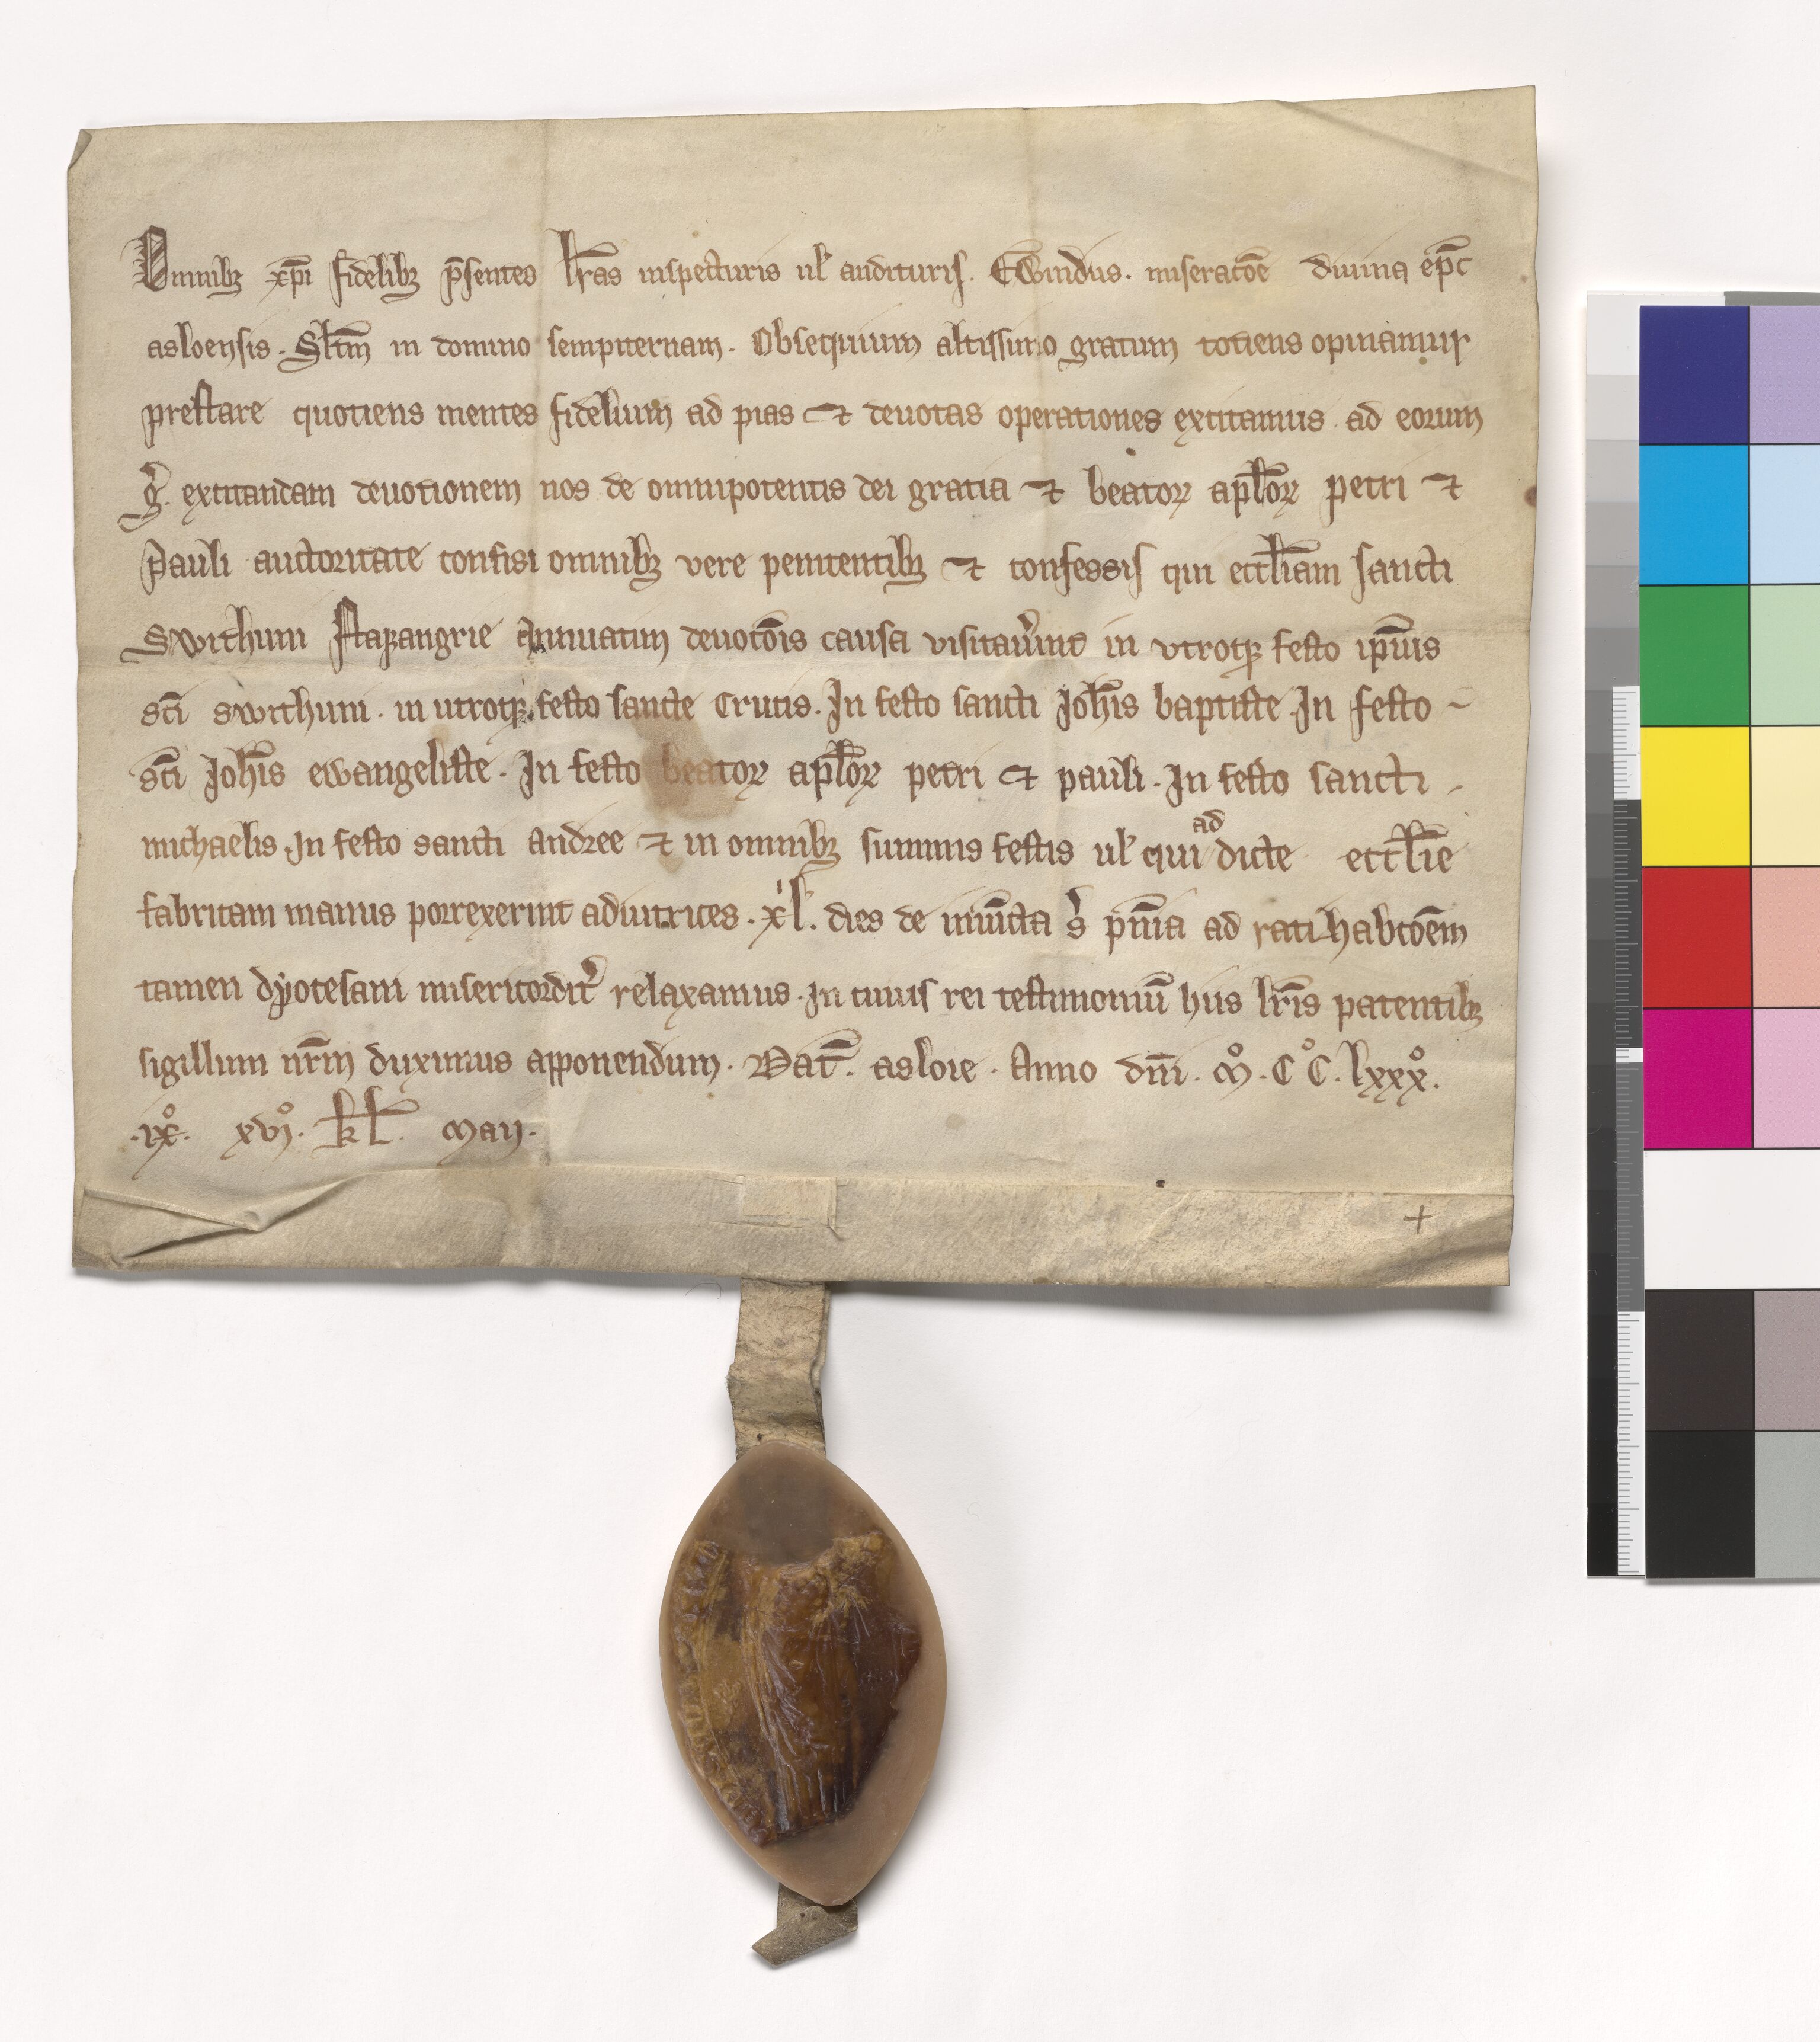 Omnibꝫ xp̄i fidelibꝫ p̄sentes lr̄as inspecturis ul̕ audituris. Ewindus. miseratōe diuina ep̄c
asloensis. Slt̄m in domino sempiternam. Obsequium altissimo gratum totiens opinamur
prestare quotiens mentes fidelium ad pias ⁊ deuotas operationes excitamus. ad eorum
gͦ. excitandam deuotionem nos de omnipotentis dei gratia ⁊ beatoꝝ apl̄oꝝ petri ⁊
Pauli auctoritate confisi omnibꝫ vere penitentibꝫ ⁊ confessis qui eccl̄iam sancti
Swithuni Stawangrie Annuatim deuotōis causa visitau̓int in vtroqꝫ festo ip̄ius
sc̄i swithuni. in utroqꝫ festo sancte Crucis. In festo sancti Joh̄is baptiste. In festo
sc̄i Joh̄is ewangeliste. In festo beatoꝝ apl̄oꝝ petri ⁊ pauli. In festo sancti
michaelis. In festo sancti andree ⁊ in omnibꝫ summis festis ul̕ qui ad dicte eccl̄ie
fabricam manus porrexerint adiutrices. xͥl. dies de iniūcta sͥ pn̄ia ad ratihabitōem
tamen dyocesani misericordit̓ relaxamus. In cuius rei testimoniū hiis lr̄is patentibꝫ
sigillum nr̄m duximus apponendum. Dat̄. asloie. Anno dn̄i. mͦ. CͦC. lxxxͦ.
.ixͦ. xvjͦ. kl̄. maij.
+